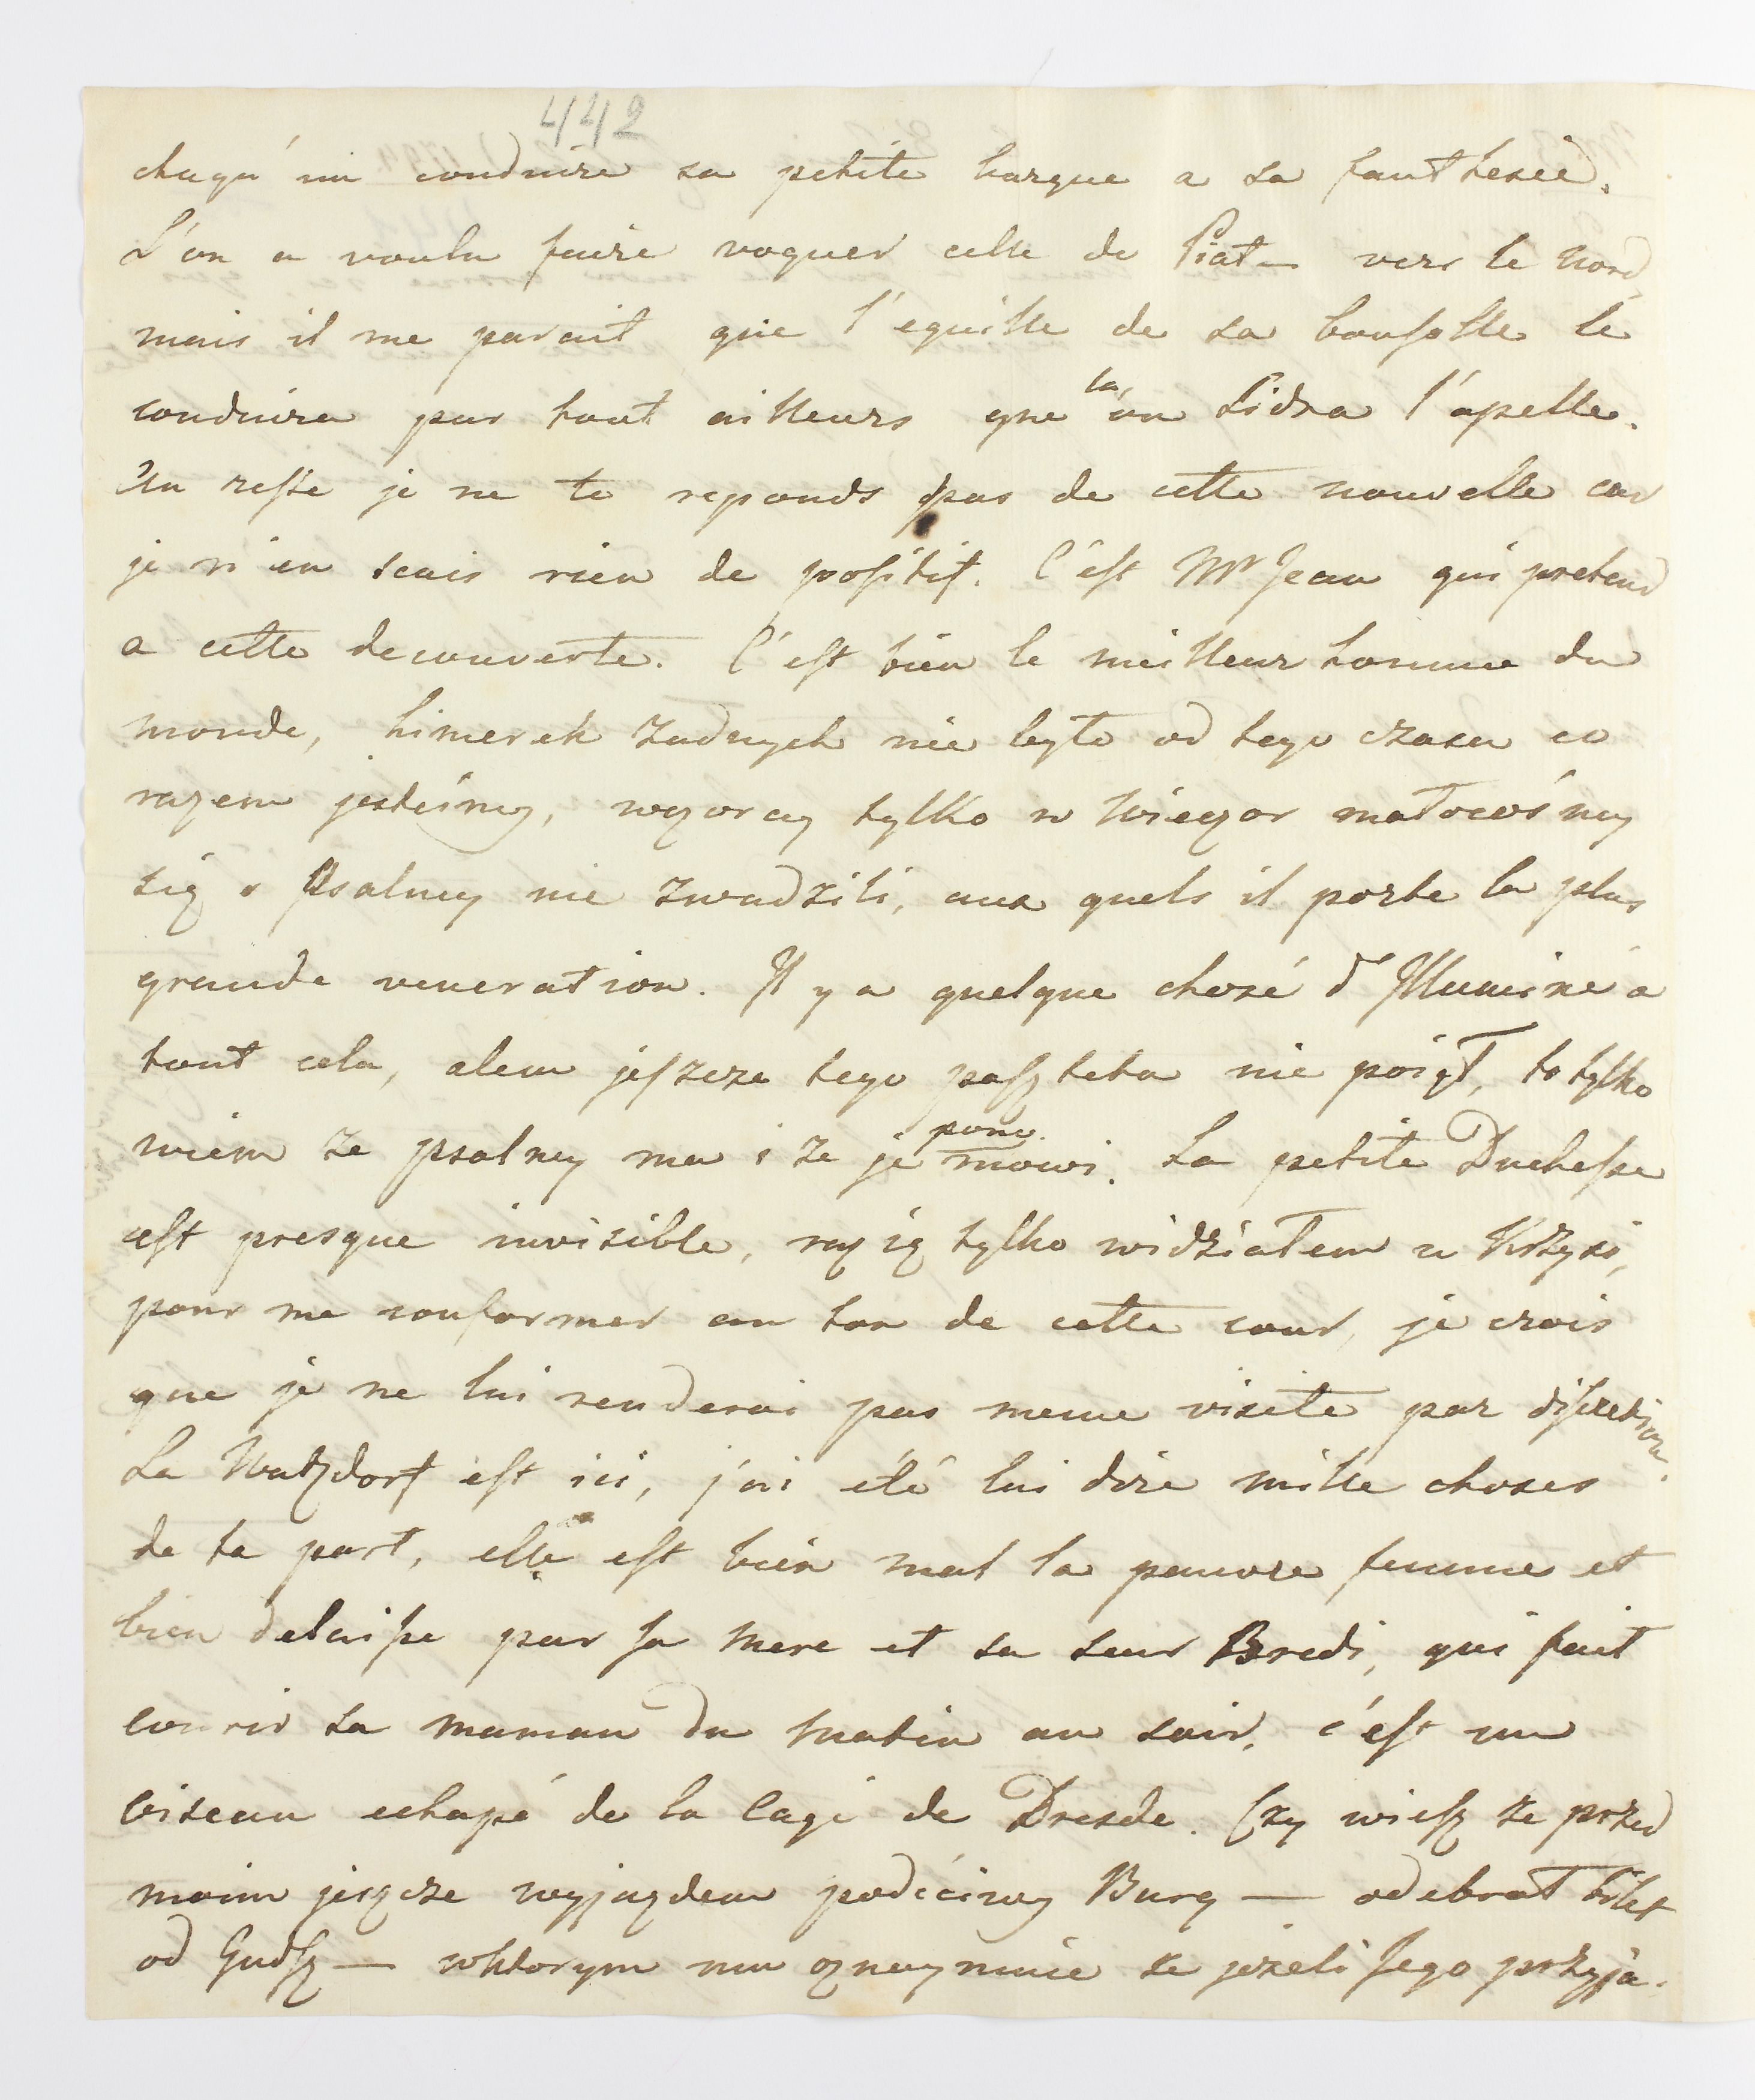 442
chaqu'un conduire sa petite barque a sa fanthesie.
L'on a voulu faire voguer celle de Piat— vers le Nord,
mais il me parait que l'eguille de sa boussolle le
conduira par tout ailleurs que la, ou Lidza l'apelle.
Au reste je ne te reponds pas de cette nouvelle car
je n'en scais rien de positif. C'est Mr Jean qui pretend
a cette decouverte. C'est bien le meilleur homme du
monde, himerek żadnych nie było od tego czasu co
razem jesteśmy, wczoray tylko w wieczor małocośmy
się o Psalmy nie zwadzili, aux quels il porte la plus
grande veneration. Il y a quelque chose d'Illuminé a
tout cela, alem jeszcze tego paszteta nie poiął, to tylko
wiem że psalmy ma i że je pono mowi. La petite Duchesse
est presque invisible, raz ią tylko widziałem u Krzysi,
pour me conformer au ton de cette cour, je crois
que je ne lui renderai pas meme visite par discretion.
La Watzdorf est ici, j'ai été lui dire mille choses
de ta part, elle est bien mal la pauvre femme et
bien delaisse par sa mere et sa seur Bredi, qui fait
courir sa maman du matin au soir, c'est un
oiseau echapé de la Cage de Dresde. Czy wiesz że przed
moim jeszcze wyjazdem podćciwy Burg — odebrał bilet
od Gudsz — wktorym mu oznaymuie że jeżeli Jego przyja-